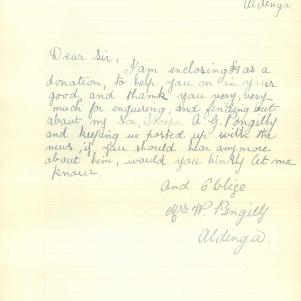 Aldinga.
Dear Sir,
I am enclosing £1 as a
donation, to help you on in your
good, and thank you very, very
much for enquiring, and finding out
about my son, A. G. Pengilly
and keeping us posted up with the
news, if you should hear anymore
about him, would you kindly let me
know.
And Oblige
Mrs W. Pengilly
Aldinga.